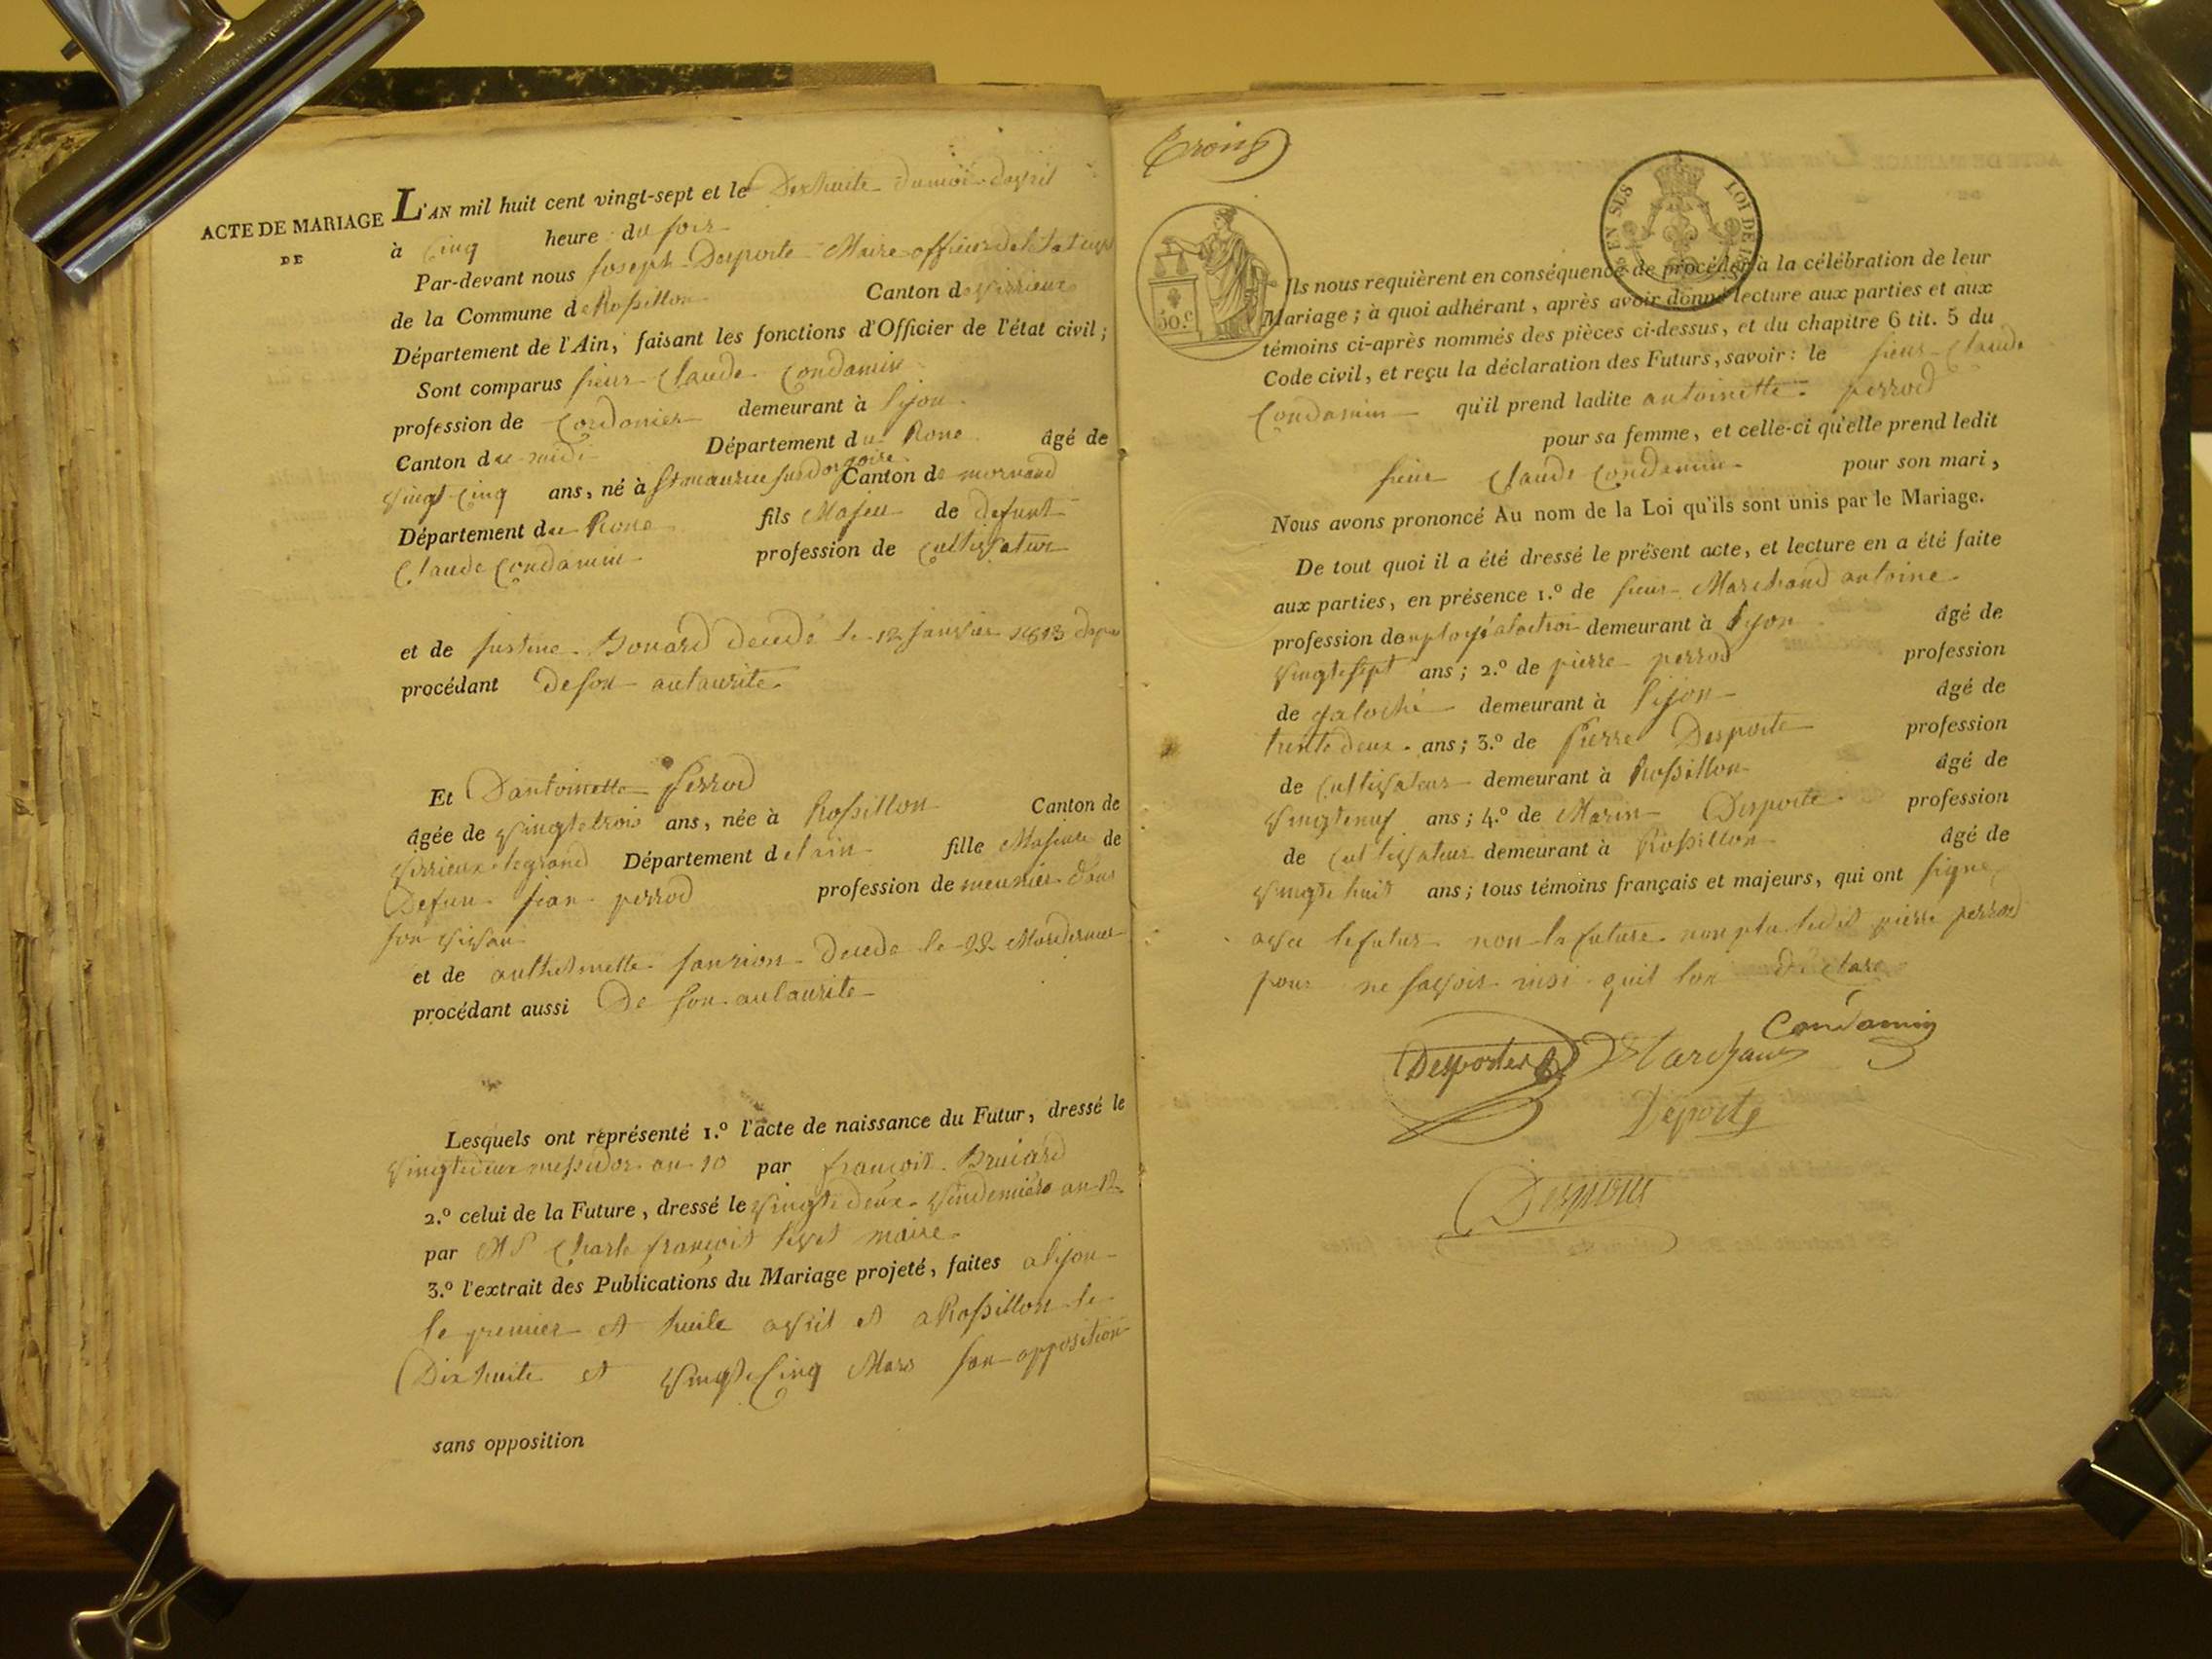 ACTE DE MARIAGE
DE
L'AN mil huit cent vingt-sept et le Dixhuite du moi davril
à Cinq heure du soir
Par-devant nous Joseph Desporte Maire officier de letat civil
de la Commune de Rossillon Canton de virrieux
Département de l'Ain, faisant les fonctions d'Officier de l'état civil ;
Sont comparus sieur Claude Condamin
profession de Cordonier demeurant à lijon
Canton du midi Département du Rone âgé de
vingt Cinq ans, né à St maurice sur dorgoire Canton de mornand
Département du Rone fils Majeu de defunt
Claude Condamin profession de cultivateur
et de Justine Gouard décédé le 12 janvier 1813
procédant de son autaurite
Et D antoinette perrod
âgée de vingtetrois ans, née à Rossillon Canton de
virrieux le grand Département de lain fille Majeure de
Defun jean perrod profession de meunier dans
son vivan
et de anthelmette decede le 22 Mars dernier
procédant aussi De son autaurite
Lesquels ont représenté 1.º l'acte de naissance du Futur, dressé le
vingtedeux messidor an 10 par françois Bruiard
2.º celui de la Future, dressé le vingtedeux vindemiere an 12
par Charle françois maire
3.º l'extrait des Publications du Mariage projeté, faites a lijon
le premier et huile avril et a Rossillon le
Dixhuite et vingteCinq Mars san opposition
sans opposition
Trois
50.c
EN SUS
LOI DE 18
Ils nous requièrent en conséquence de procéder à la célébration de leur
Mariage ; à quoi adhérant, après avoir donné lecture aux parties et aux
témoins ci-après nommés des pièces ci-dessus, et du chapitre 6 tit. 5 du
Code civil, et reçu la déclaration des Futurs, savoir : le sieur Claude
Condamin qu'il prend ladite antoinette perrod
pour sa femme, et celle-ci qu'elle prend ledit
sieur Claude Condamin pour son mari,
Nous avons prononcé Au nom de la Loi qu'ils sont unis par le Mariage.
De tout quoi il a été dressé le présent acte, et lecture en a été faite
aux parties, en présence 1.º de sieur Marchand antoine
profession demployé demeurant à Lyon âgé de
vingtesept ans ; 2.º de pierre perrod profession
de galoché demeurant à lijon âgé de
trentedeux ans ; 3.º de Pierre Desporte profession
de Cultivateur demeurant à Rossillon âgé de
vingteneuf ans ; 4.º de Marin Desporte profession
de cultivateur demeurant à Rossillon âgé de
vingtehuit ans ; tous témoins français et majeurs, qui ont signe
avec le futur non la future non plu ledit pierre perrod
pour ne savoir insi quil lon declare
Condamin
Desportes Marchand
Deporte
Desporte